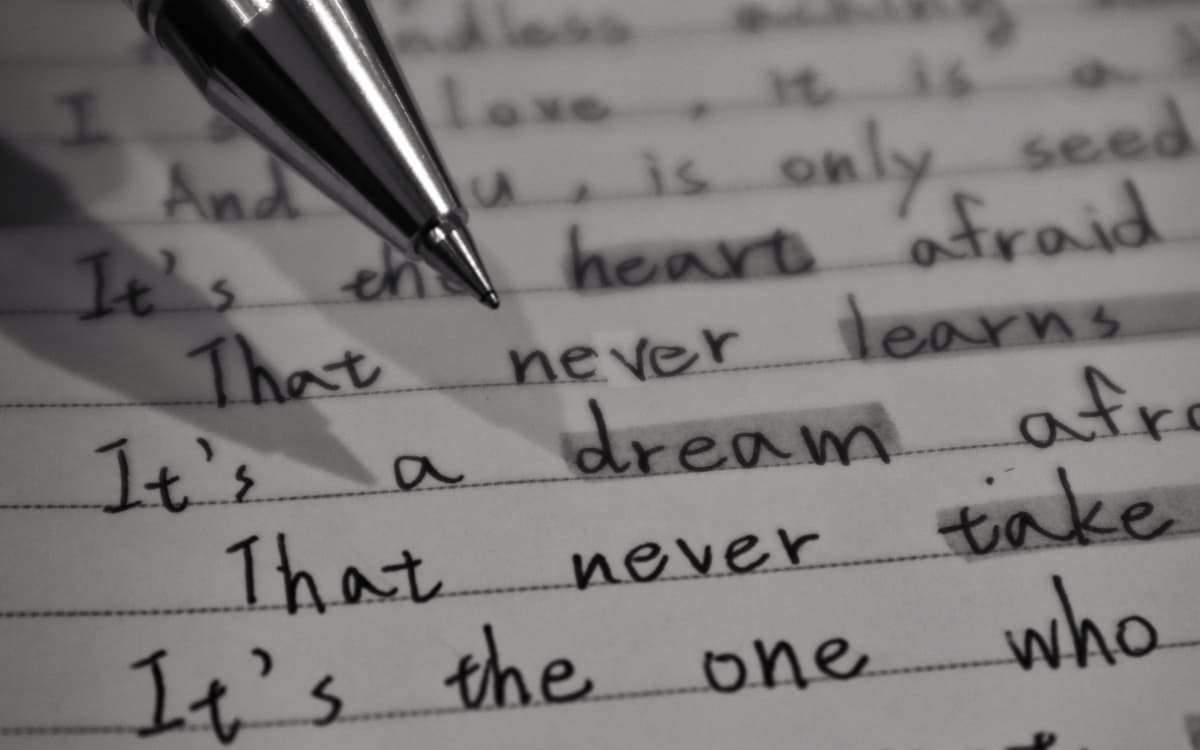 I love, it is a
And u, is only seed
It's the heart afraid
That never learns
It's a dream afra
That never take
It's the one who